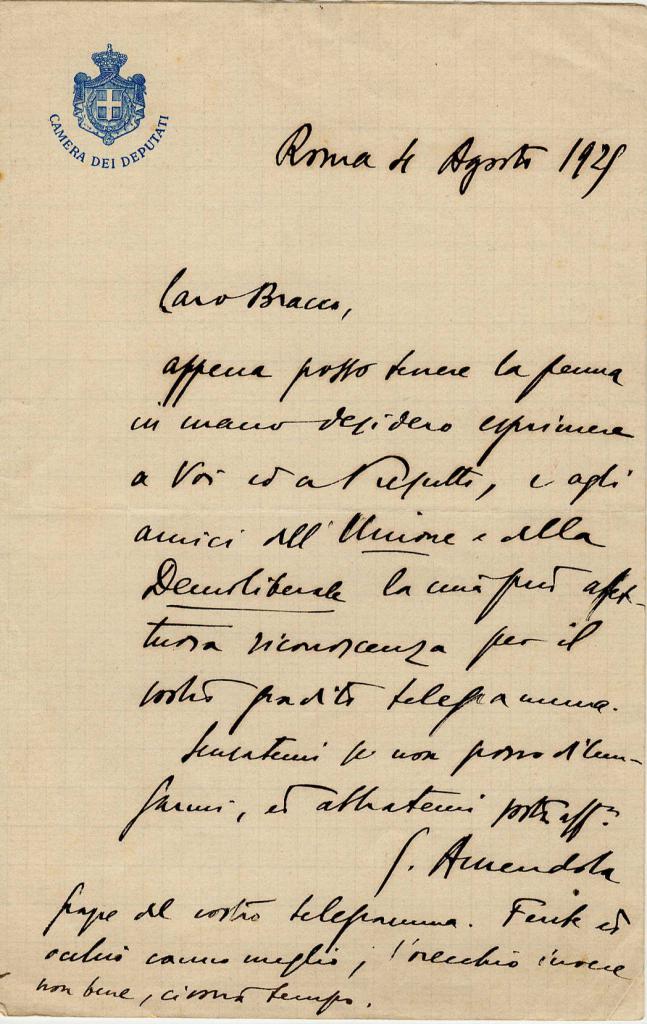 CAMERA DEI DEPUTATI
Roma 4 Agosto 1925
Caro Bracco,
appena posso tenere la penna
in mano desidero esprimere
a Voi ed a Presutti, e agli
amici dell'Unione e della
Demoliberale la mia più affet-
tuosa riconoscenza per il
vostro gradito telegramma.
Scusatemi se non posso dilun-
garmi, ed abbiatemi vostro aff.mo
G. Amendola
Grazie del vostro telegramma. Ferite ed
occhio vanno meglio; l'orecchio invece
non bene, ci vorrà tempo.